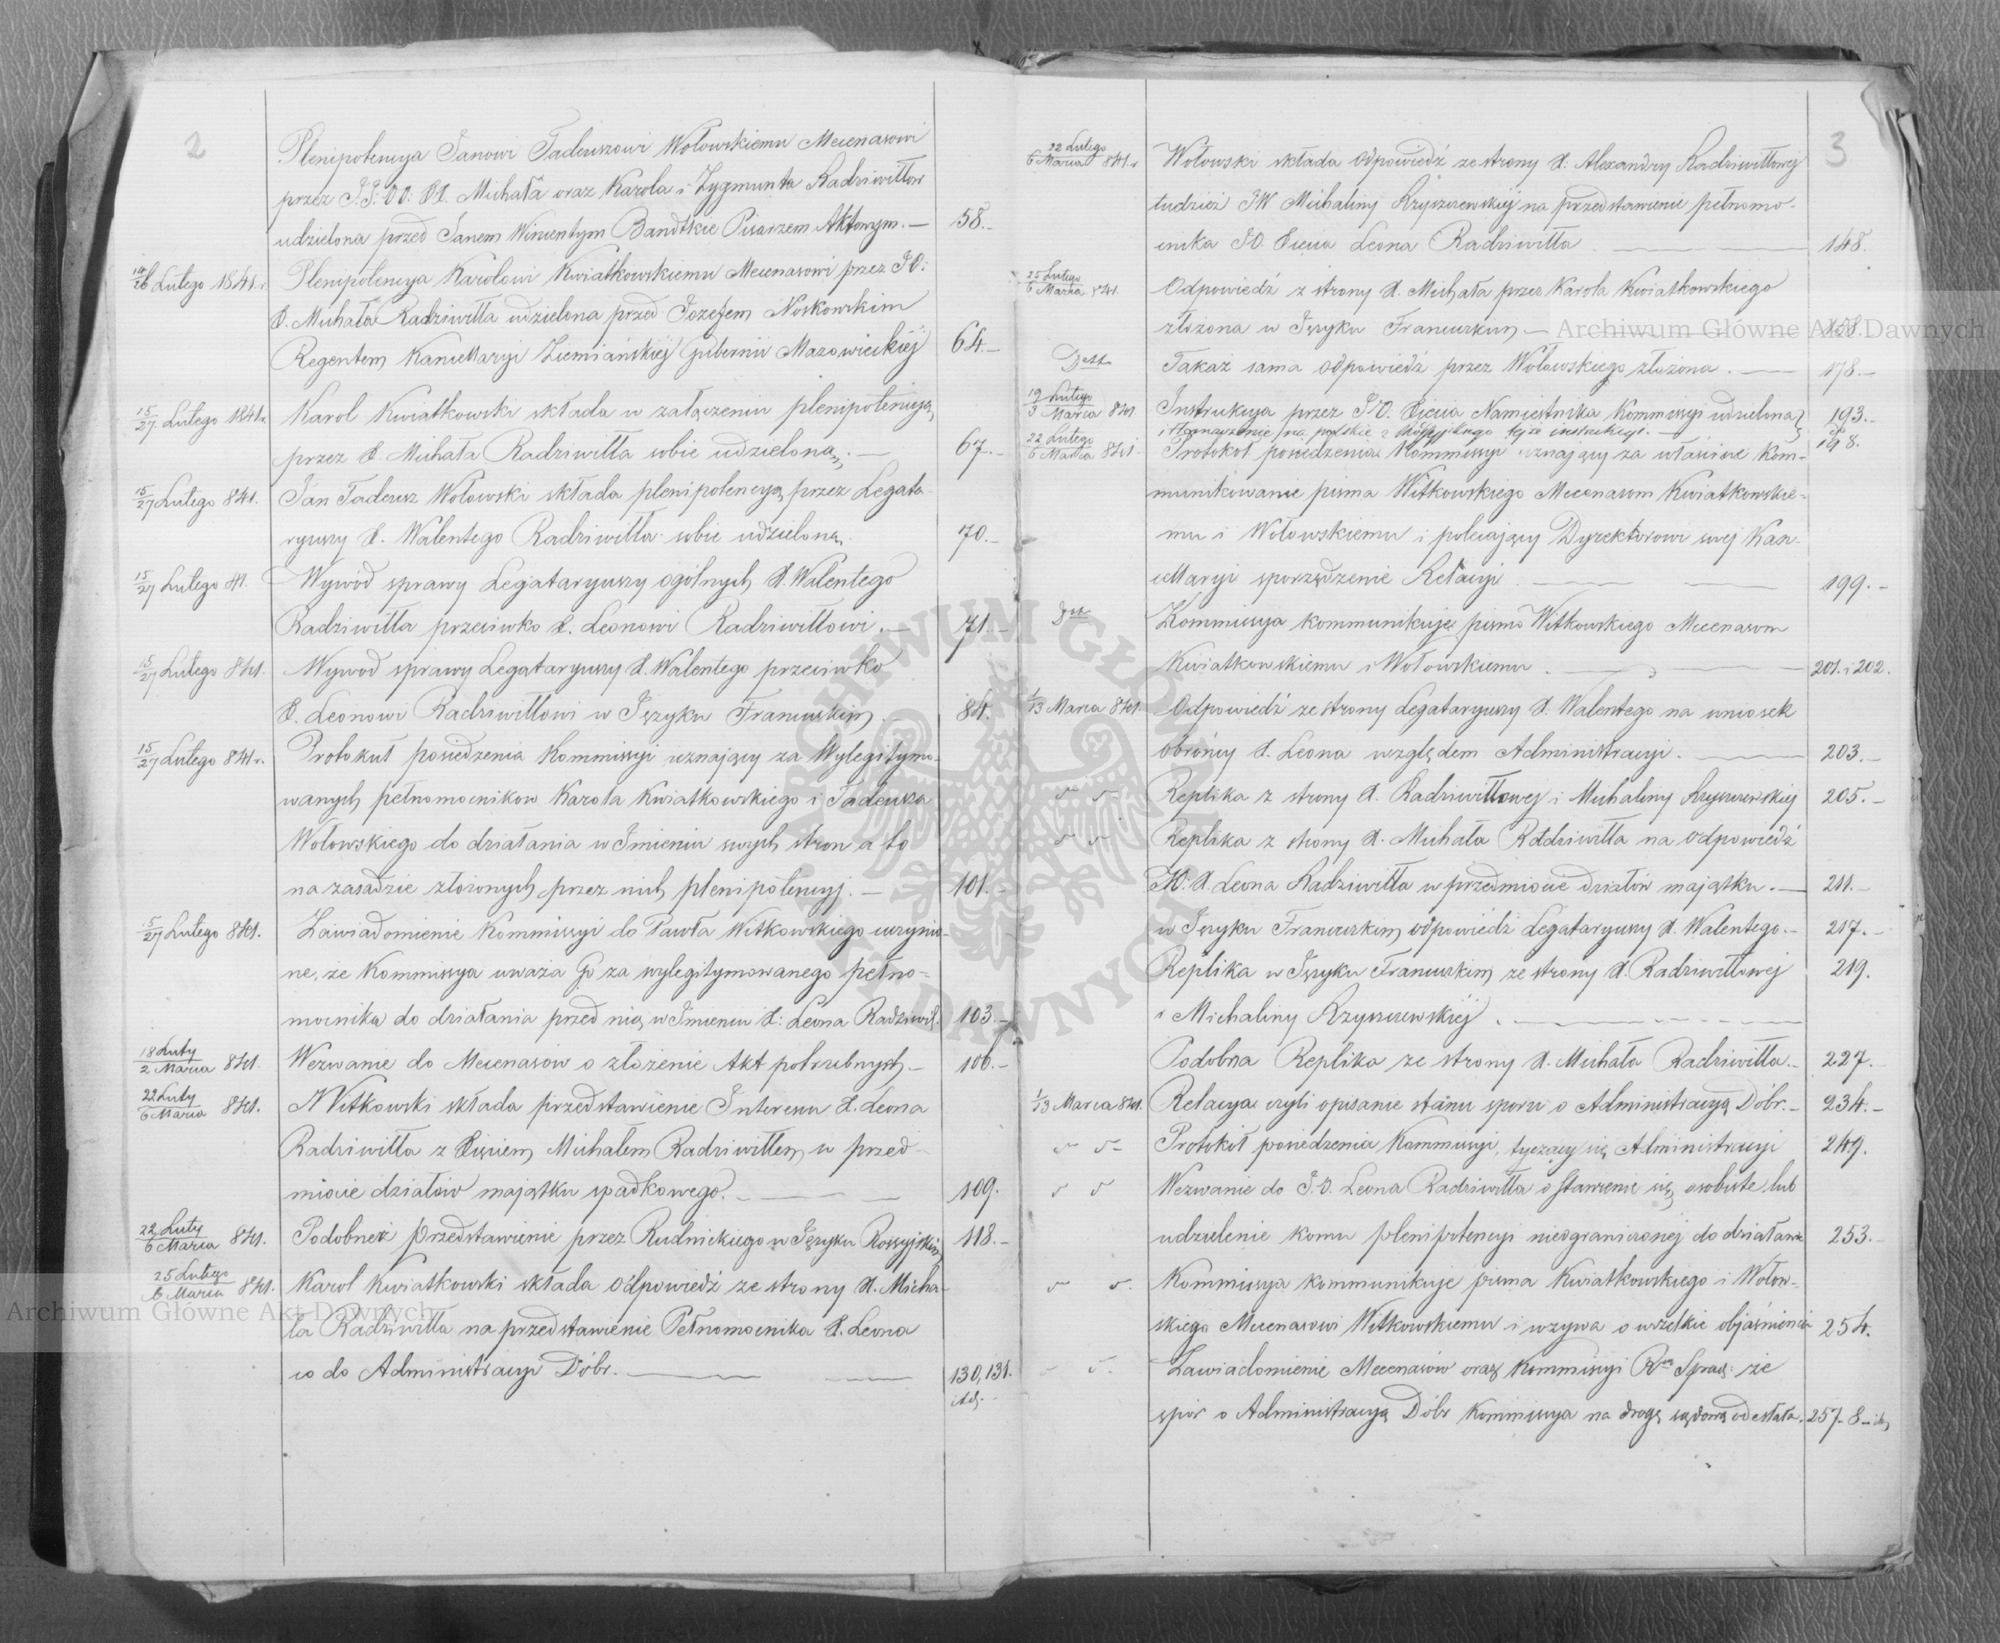 2
Plenipotencya Janowi Tadeuszowi Wołowskiemu Mecenasowi
przez J.J: OO: XX. Michała oraz Karola i Zygmunta Radziwiłłow
udzielona przed Janem Wincentym Bandtkie Pisarzem Aktowym. — 58. —
Lutego 1841 r. Plenipotencya Karolowi Kwiatkowskiemu Mecenasowi przez JO:
X. Michała Radziwiłła udzielona przed Jozefem Noskowskim
Regentem Kancellaryi Ziemiańskiej Gubernii Mazowieckiej 64. —
15/27. Lutego 1841 r. Karol Kwiatkowski składa w załączeniu plenipotencyą
przez X. Michała Radziwiłła sobie udzieloną. — 67. —
15/27 Lutego 841. Jan Tadeusz Wołowski składa plenipotencyą przez Legata-
ryuszy X. Walentego Radziwiłła sobie udzieloną. 70. —
15/27 Lutego 41. Wywód sprawy Legataryuszy ogólnych X. Walentego
Radziwiłła przeciwko X. Leonowi Radziwiłłowi. — 71. —
15/27 Lutego 841. Wywod sprawy Legataryuszy X. Walentego przeciwko
X. Leonowi Radziwiłłowi w Języku Francuskim. 84. —
15/27 Lutego 841 r. Protokuł posiedzenia Kommissyi uznający za Wylegitymo-
wanych pełnomocnikow Karola Kwiatkowskiego i Tadeusza
Wołowskiego do działania w Imieniu swych stron a to
na zasadzie złożonych przez nich plenipotencyj. — 101. —
15/27 Lutego 841. Zawiadomienie Kommissyi do Pawła Witkowskiego uczynio-
ne, że Kommissya uważa Go za wylegitymowanego pełno-
mocnika do działania przed nią w Imieniu X: Leona Radziwił. 103. —
18 Luty/2 Marca 841. Wezwanie do Mecenasów o złożenie Akt potrzebnych — 106. —
22 Luty/6 Marca 841. Witkowski składa przedstawienie Interesu X. Leona
Radziwiłła z Xięciem Michałem Radziwiłłem w przed-
miocie działów majątku spadkowego. — 109.
22 Luty/6 Marca 841. Podobneż Przedstawienie przez Rudnickiego w Języku Rossyjskim 118. —
25 Lutego/6 Marca 841. Karol Kwiatkowski składa Odpowiedź ze strony X. Micha-
ła Radziwiłła na przedstawienie Pełnomocnika X. Leona
co do Administracyi Dóbr. — 130, 131.
3
22 Lutego/6 Marca 841. r Wołowski składa Odpowiedź ze strony X. Alexandry Radziwiłłowej
tudzież JW Michaliny Rzyszczewskiej na przedstawienie pełnomo-
cnika JO. Xięcia Leona Radziwiłła — 148.
25 Lutego/6 Marca 841. Odpowiedź z strony X. Michała przez Karola Kwiatkowskiego
złożona w Języku Francuskim — 158.
Dtto Takaż sama Odpowiedź przez Wołowskiego złożona. — 178. —
19 Lutego/3 Marca 841 Instrukcya przez JO. Xięcia Namiestnika Kommissyi udzielona 193. —
i tłomaczenie na polskie z Rossyjskiego tejże instrukcyi. — 198.
22 Lutego/6 Marca 841. Protokół posiedzenia Kommissyi uznający za właściwe kom-
munikowanie pisma Witkowskiego Mecenasom Kwiatkowskie-
mu i Wołowskiemu i polecający Dyrektorowi swej Kan-
cellaryi sporządzenie Relacyi. — 199. —
Dtto Kommissya kommunikuje pismo Witkowskiego Mecenasom
Kwiatkowskiemu i Wołowskiemu. — 201. i 202.
1/13 Marca 841. Odpowiedź ze strony Legataryuszy X. Walentego na wniosek
obrońcy X. Leona względem Administracyi. — 203. —
Replika z strony X. Radziwiłłowej i Michaliny Rzyszczewskiej 205. —
Replika z strony X. Michała Radziwiłła na Odpowiedź
JO. X. Leona Radziwiłła w przedmiocie działów majątku. — 211. —
w Języku Francuskim odpowiedź Legataryuszy X. Walentego. — 217. —
Replika w Języku Francuskim ze strony X. Radziwiłłowej 219.
i Michaliny Rzyszczewskiej. —
Podobna Replika ze strony X. Michała Radziwiłła. — 227. —
1/13 Marca 841. Relacya czyli opisanie stanu sporu o Administracyą Dóbr. — 234. —
Protokół posiedzenia Kommissyi, tyczący się Administracyi 249.
Wezwanie do J.O. Leona Radziwiłła o stawienie się osobiste lub
udzielenie komu plenipotencyi nieograniczonej do działania 253. —
Kommissya kommunikuje pisma Kwiatkowskiego i Wołow-
skiego Mecenasowi Witkowskiemu i wzywa o wszelkie objaśnienia 254.
Zawiadomienie Mecenasów oraz Kommissyi Rzą Spraw: że
spór o Administracyą Dóbr Kommissya na drogę sądową odesłała. 257-8-
Archiwum Główne Akt Dawnych
Archiwum Główne Akt Dawnych
ARCHIWUM GŁÓWNE AKT DAWNYCH